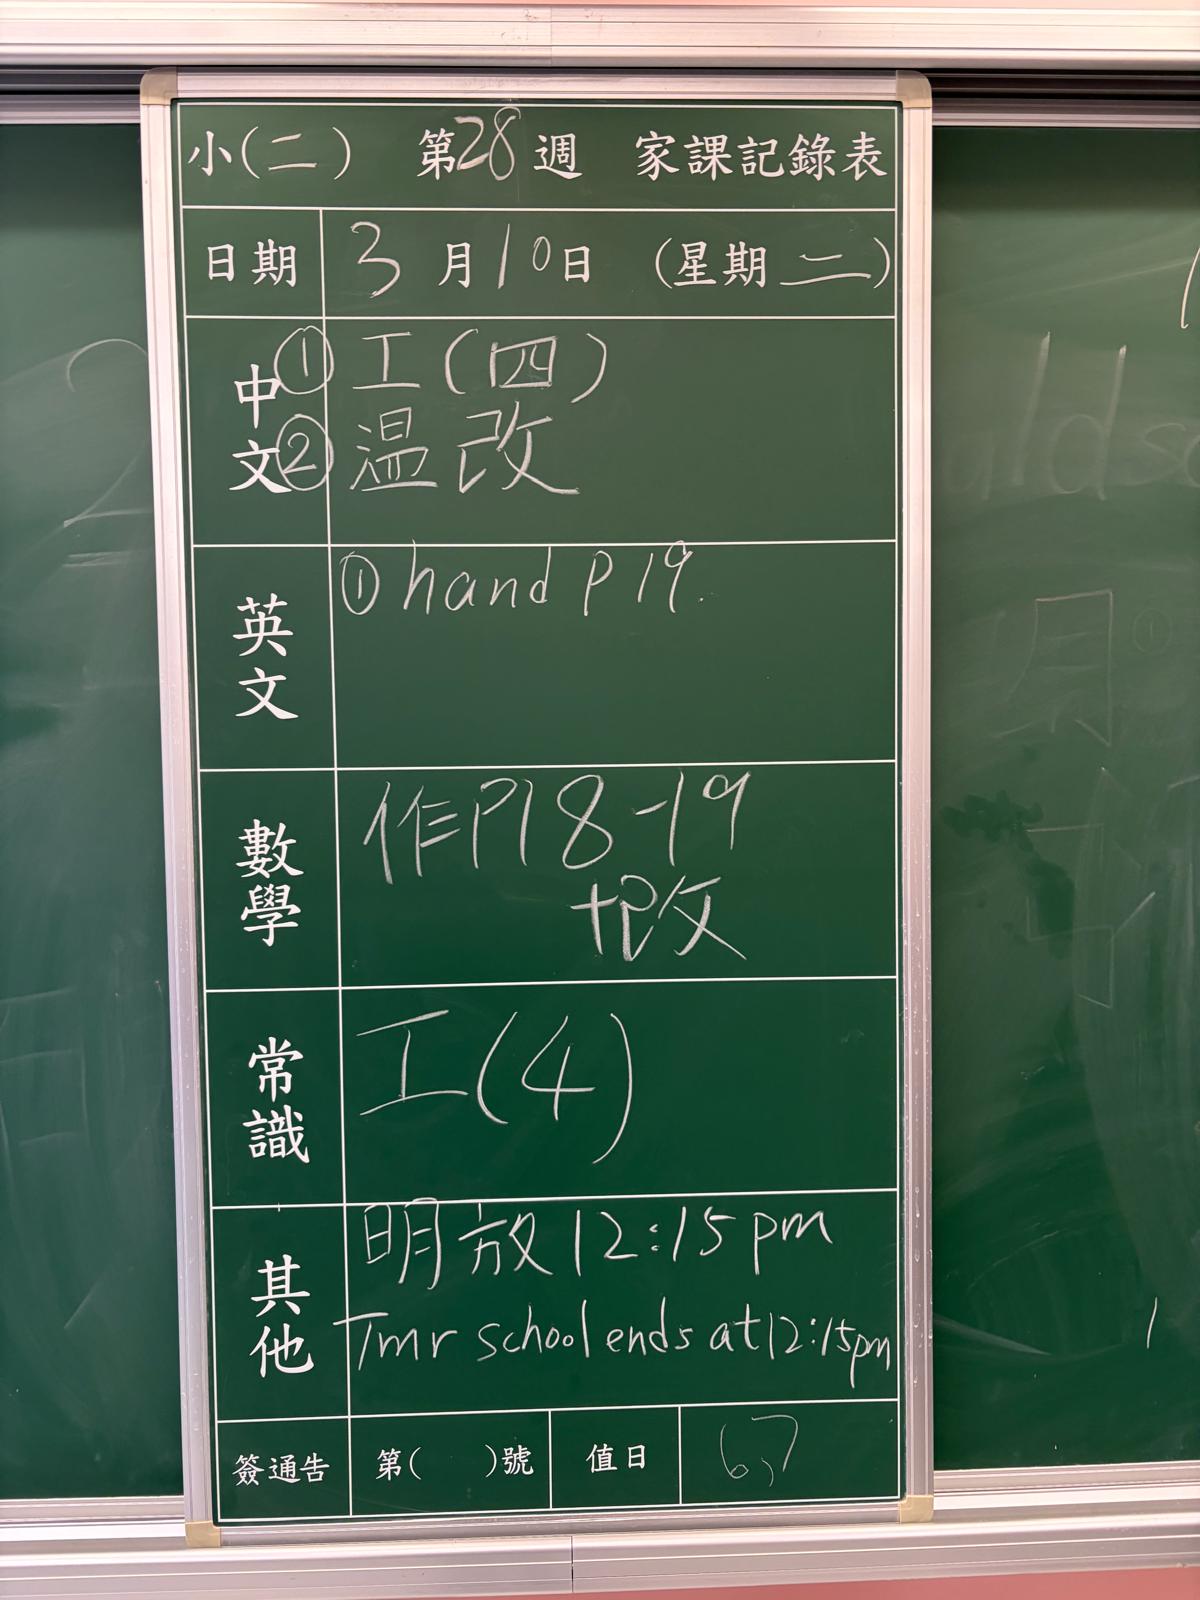 小(二) 第28週 家課記錄表
日期 3月10日 (星期二)
中文 ① 工(四)
② 温改
英文 ① hand P19.
數學 作P18-19
+改
常識 工(4)
其他 明放12:15pm
Tmr school ends at 12:15pm
簽通告 第( )號 值日 6,7